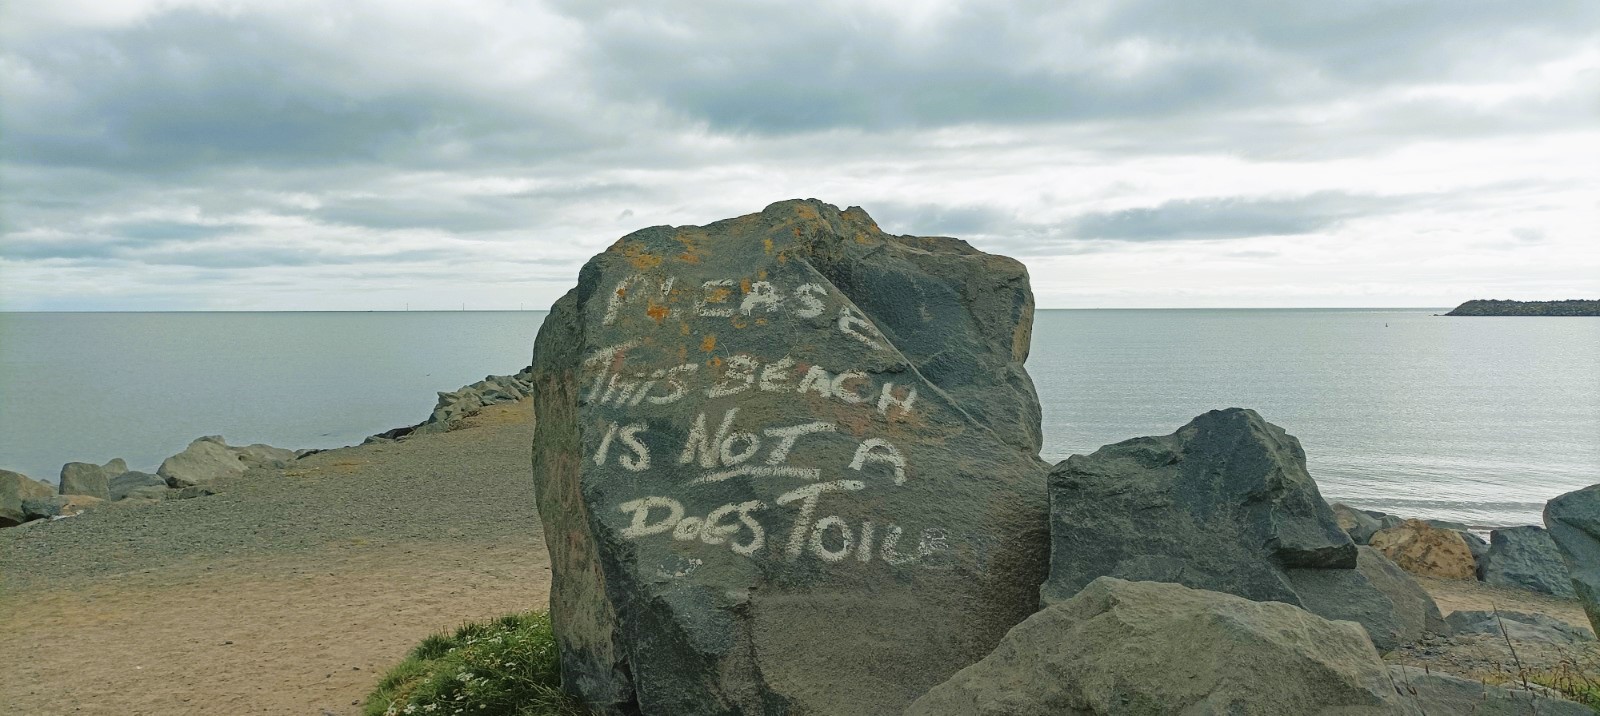 PLEASE
THIS BEACH
IS NOT A
DOES TOILE